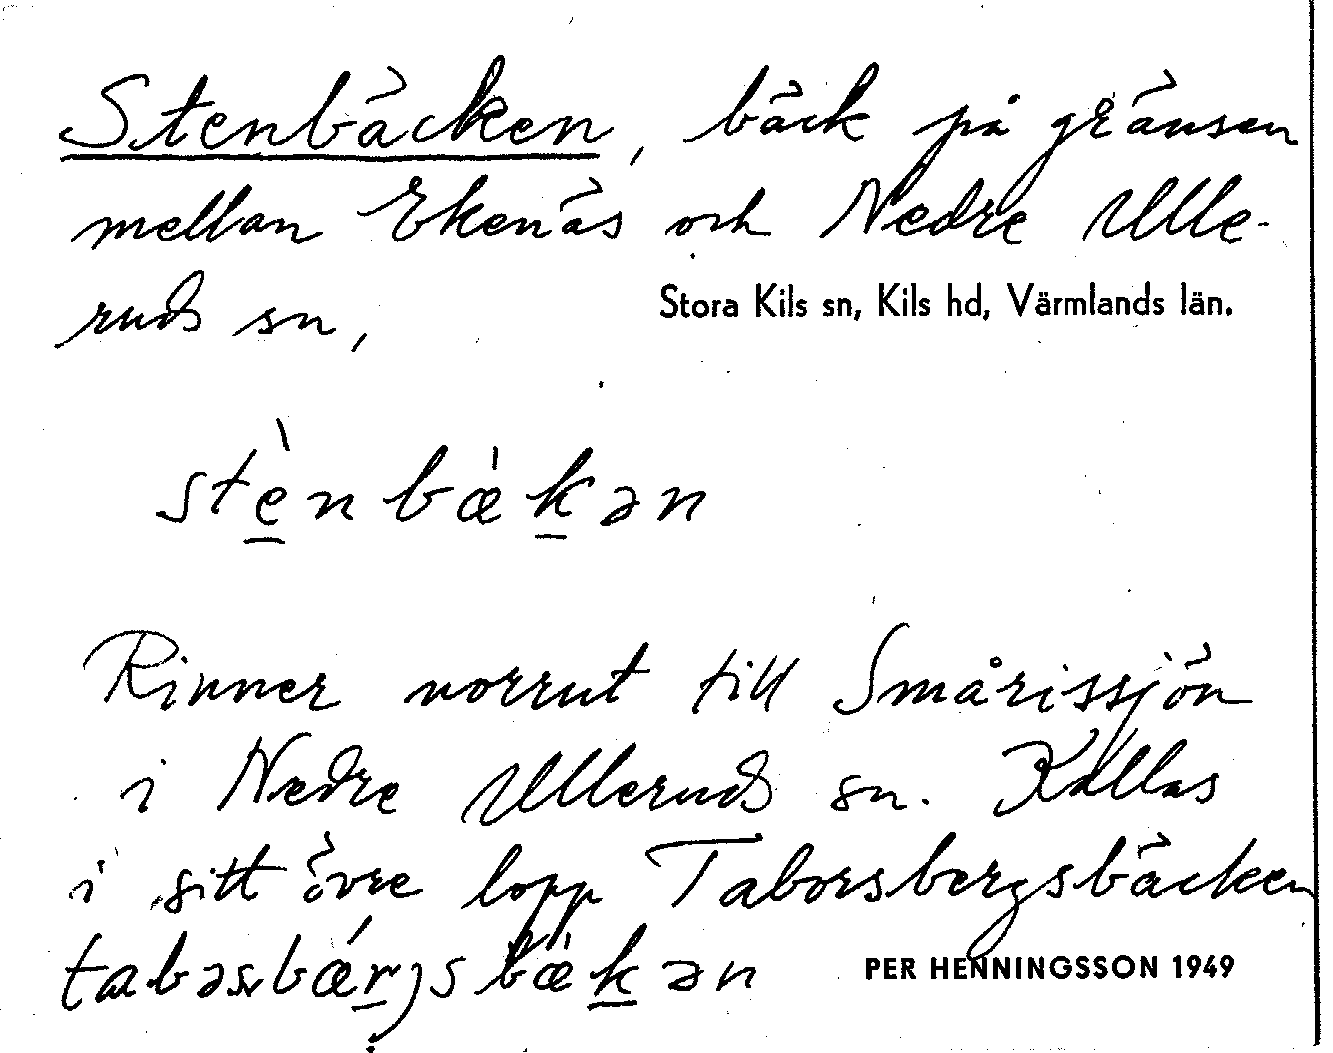 Stenbäcken, bäck på gränsen
mellan Ekenäs och Nedre Ulle-
ruds sn,
Stora Kils sn, Kils hd, Värmlands län.
stè̱nbæ̀ḵən
Rinner norrut till Smårissjön
i Nedre Ulleruds sn. Kallas
i sitt övre lopp Taborsbergsbäcken
PER HENNINGSSON 1949